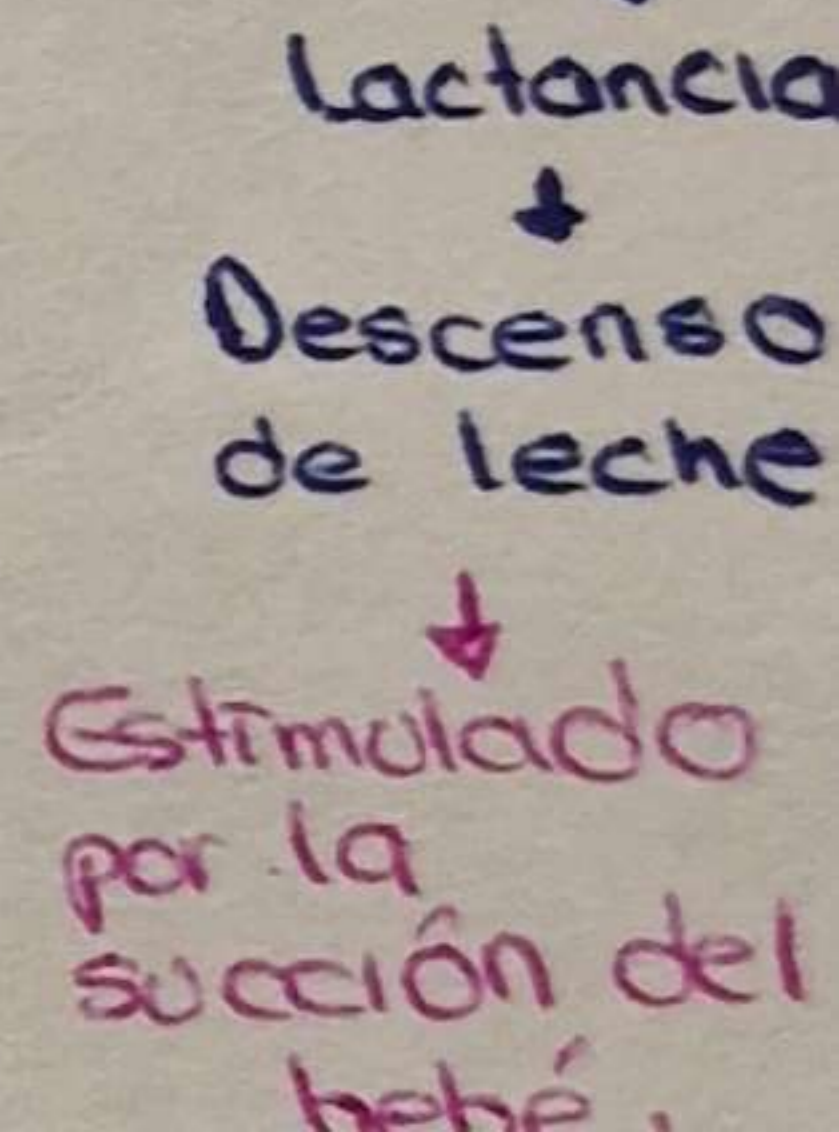 Lactancia
Descenso
de leche
Estimulado
por la
succión del
bebé.